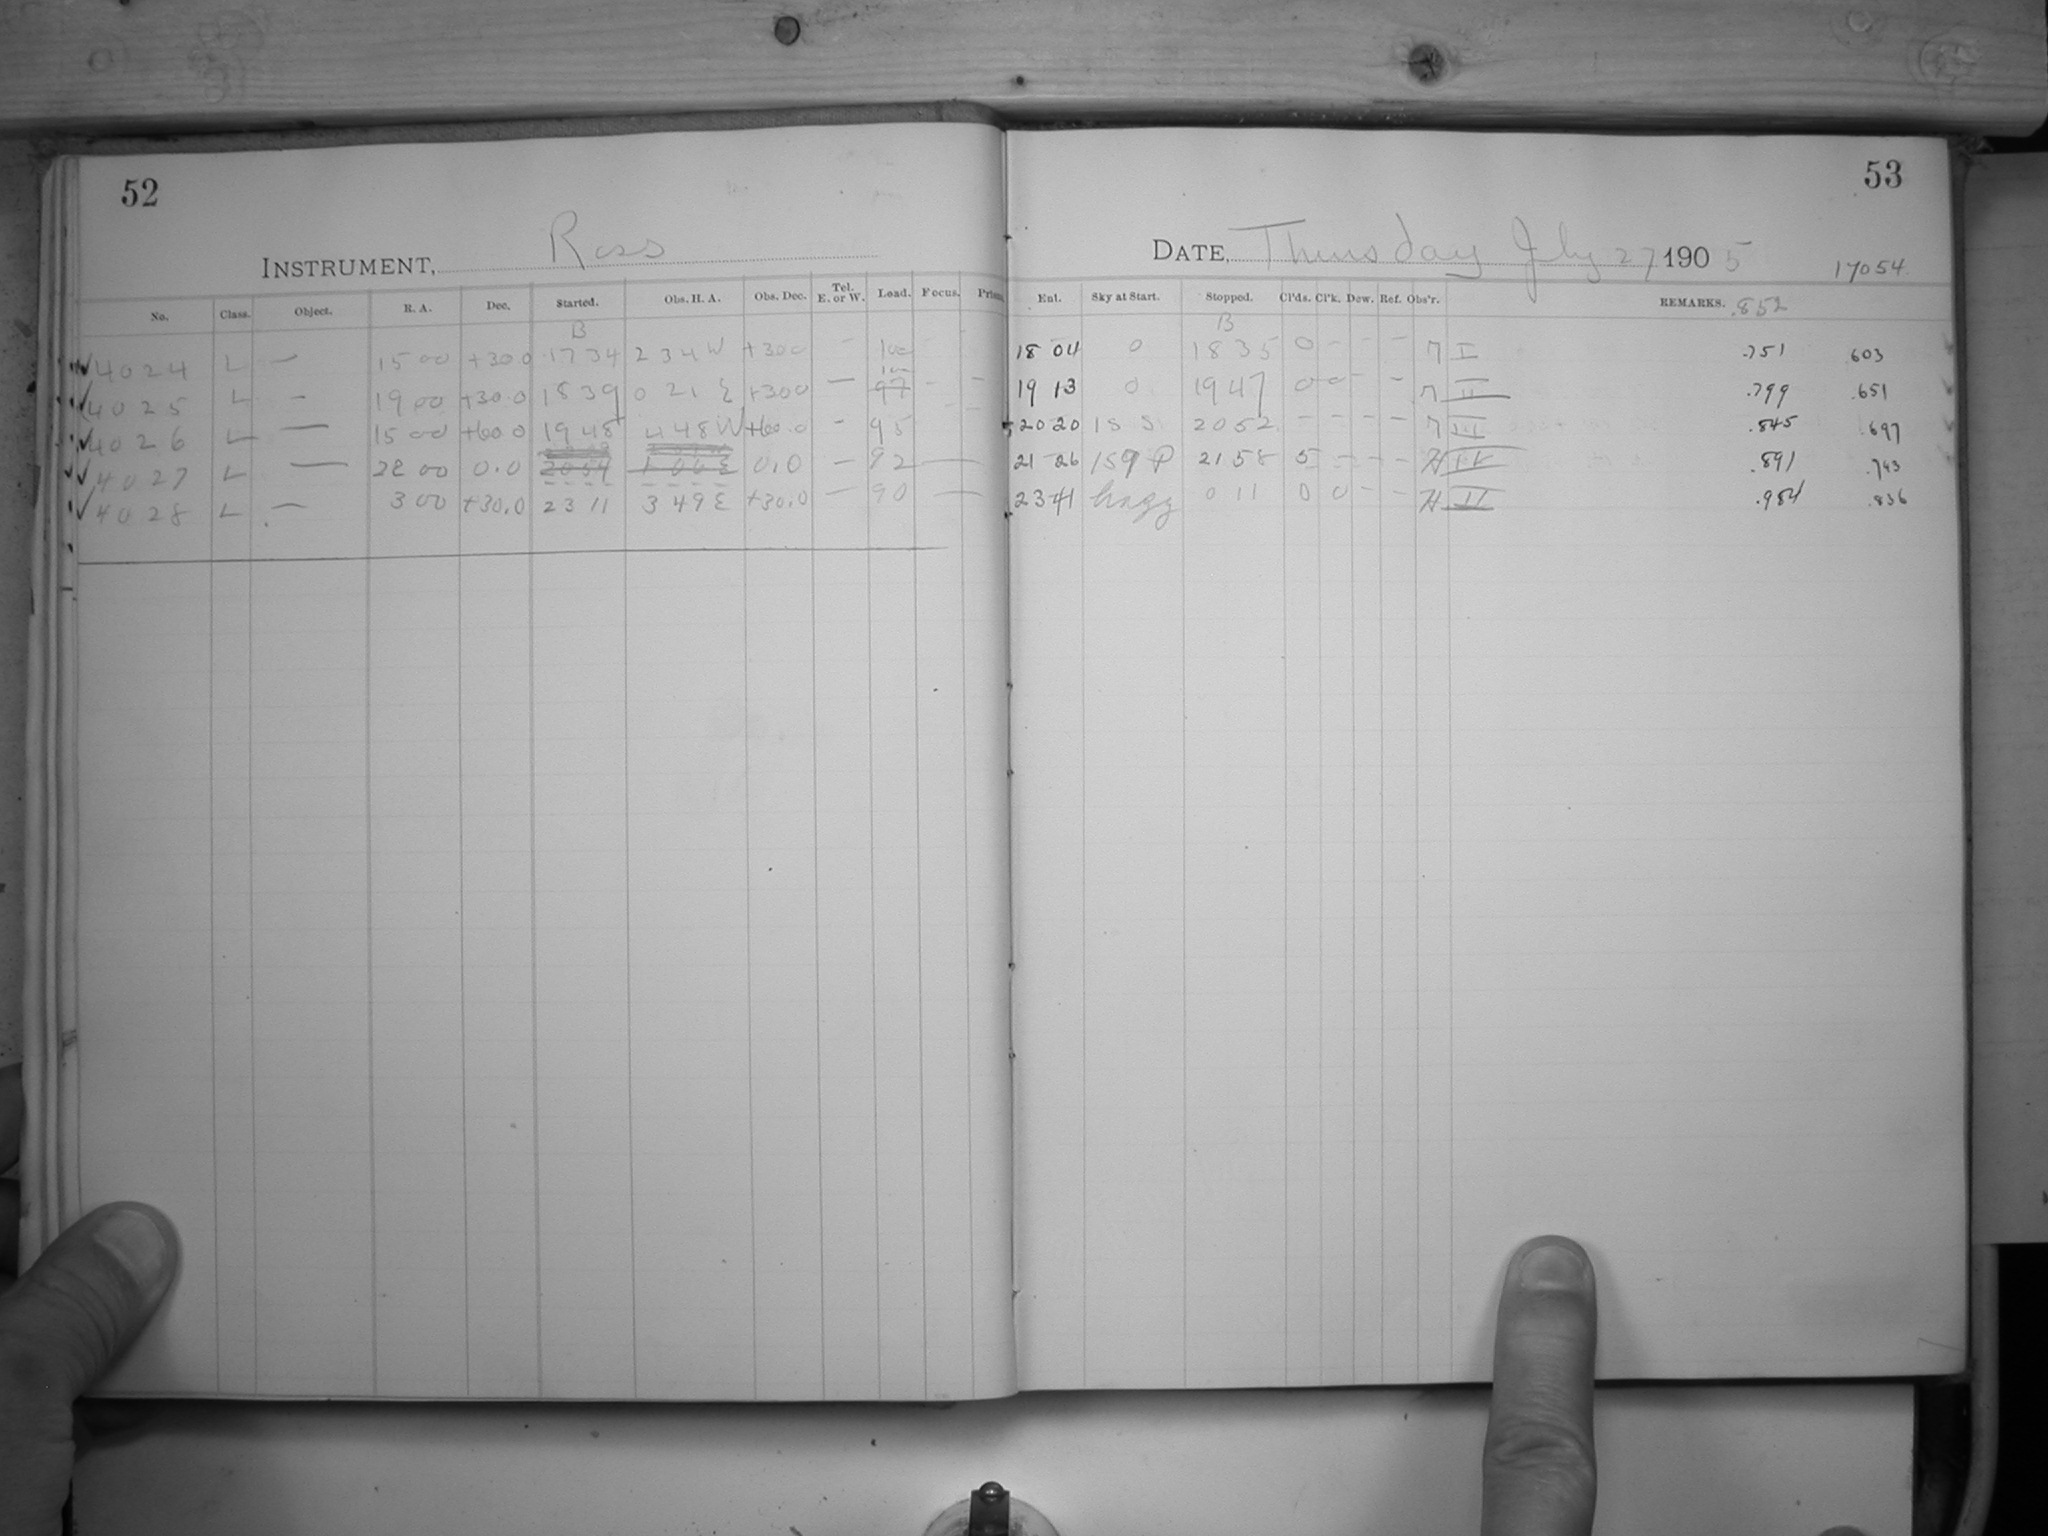 52
INSTRUMENT, Ross
No. Class. Object. R. A. Dec. Started. Obs. H. A. Obs. Dec. Tel. E. or W. Load. Focus. Prism
B
4024 L — 15 00 +30 0 17 34 2 34 W +30 0 — 100
4025 L — 19 00 +30 0 18 39 0 21 E +30 0 — 97 100 - -
4026 L — 15 00 +60 0 19 48 4 48 W +60.0 - 95
4027 L — 22 00 0.0 20 54 1 00 E 0.0 — 92 —
4028 L — 3 00 +30.0 23 11 3 49 E +30.0 — 90 —
53
DATE, Thursday July 27 1905
17054
Ent. Sky at Start. Stopped. Cl'ds. Cl'k. Dew. Ref. Obs'r. REMARKS. .852
B
18 04 0 18 35 0 - - - I .751 603
19 13 0 19 47 0 0 - - II .799 .651
20 20 1 S S 20 52 - - - - III .845 .697
21 26 21 58 5 - - - H IV .891 .743
23 41 hazy 0 11 0 0 - - H II .984 .836